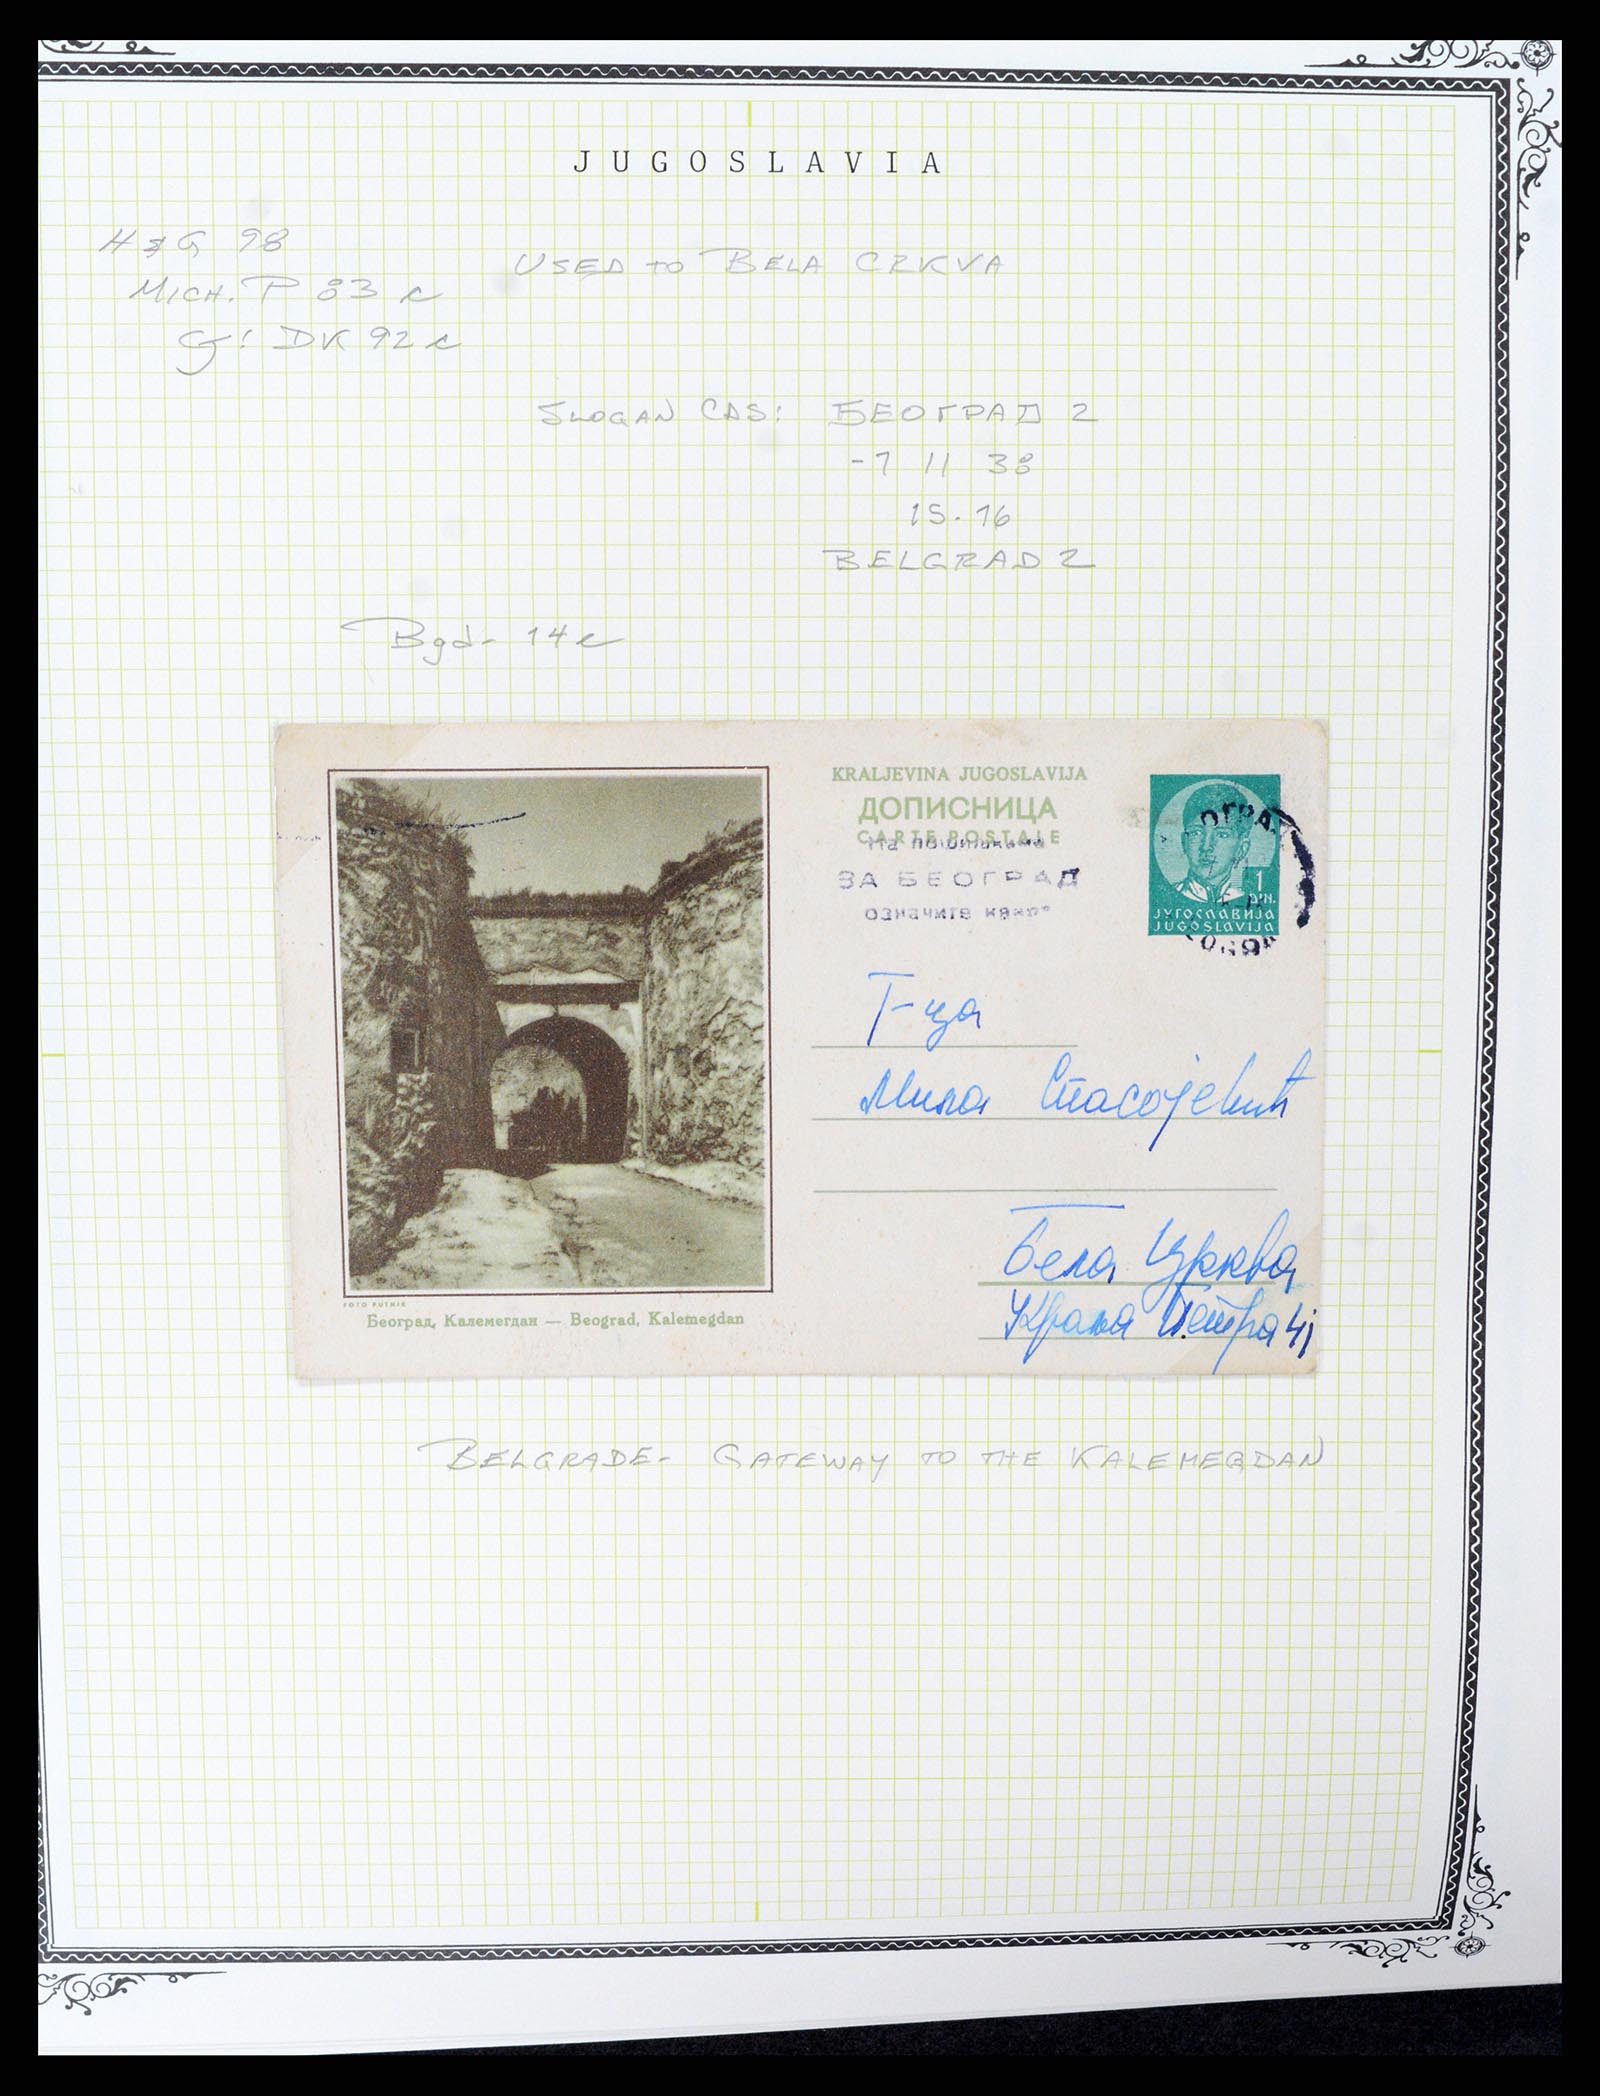 JUGOSLAVIA
H & G 98
USED TO BELA CRKVA
MICH. P 83 c
G: DK 92 c
SLOGAN CDS: БЕОГРАД 2
-7 11 38
15.16
BELGRAD 2
Bgd- 14 c
KRALJEVINA JUGOSLAVIJA
ДОПИСНИЦА
CARTE POSTALE
На пошиљкама
ЗА БЕОГРАД
означите
1
ДИН.
ЈУГОСЛАВИЈА
JUGOSLAVIJA
Г-ца
Мила Спасојевић
Бела Црква
Краља Петра 41
FOTO PUTNIK
Београд, Калемегдан — Beograd, Kalemegdan
BELGRADE- GATEWAY TO THE KALEMEGDAN